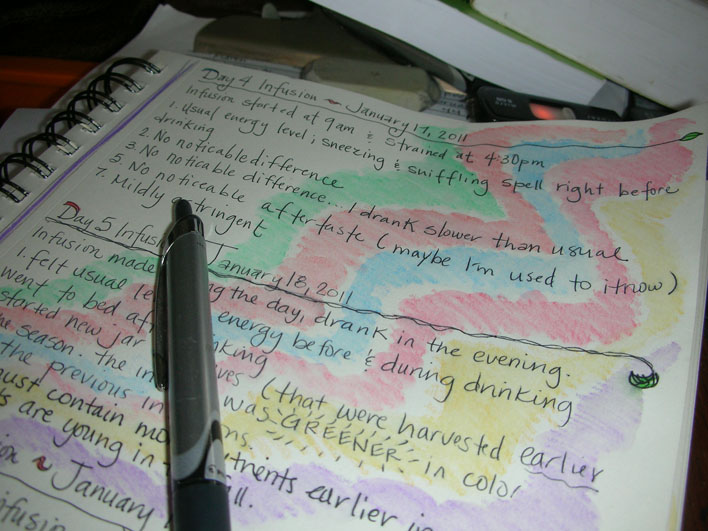 Day 4 Infusion ~ January 17, 2011
Infusion started at 9am & strained at 4:30pm
1. Usual energy level; sneezing & sniffling spell right before
drinking
2. No noticable difference
3. No noticable difference... I drank slower than usual
5. No noticeable aftertaste (maybe I'm used to it now)
7. Mildly
Day 5 January 18, 2011
Infusion made the day, drank in the evening.
1. felt usual energy before & during drinking
went to bed
started new jar
the season. the (that were harvested earlier
the previous was GREENER in color
must contain earlier in
are young in
January